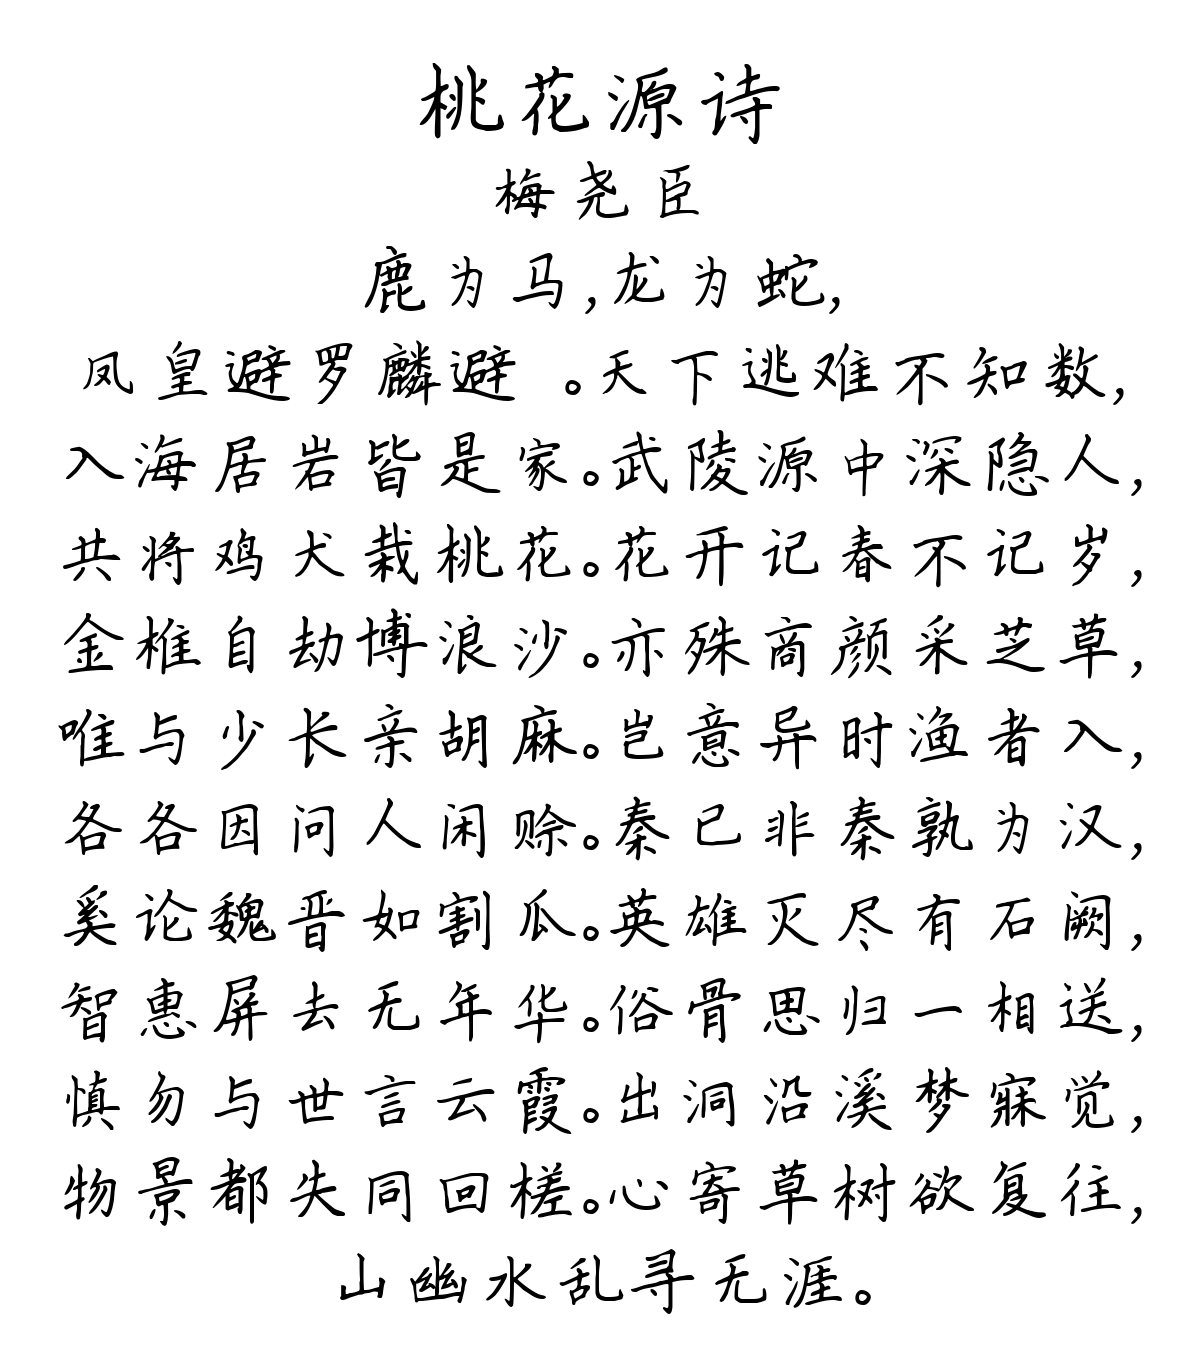 桃花源诗
梅尧臣
鹿为马,龙为蛇,
凤皇避罗麟避 。天下逃难不知数,
入海居岩皆是家。武陵源中深隐人,
共将鸡犬栽桃花。花开记春不记岁,
金椎自劫博浪沙。亦殊商颜采芝草,
唯与少长亲胡麻。岂意异时渔者入,
各各因问人闲赊。秦已非秦孰为汉,
奚论魏晋如割瓜。英雄灭尽有石阙,
智惠屏去无年华。俗骨思归一相送,
慎勿与世言云霞。出洞沿溪梦寐觉,
物景都失同回槎。心寄草树欲复往,
山幽水乱寻无涯。